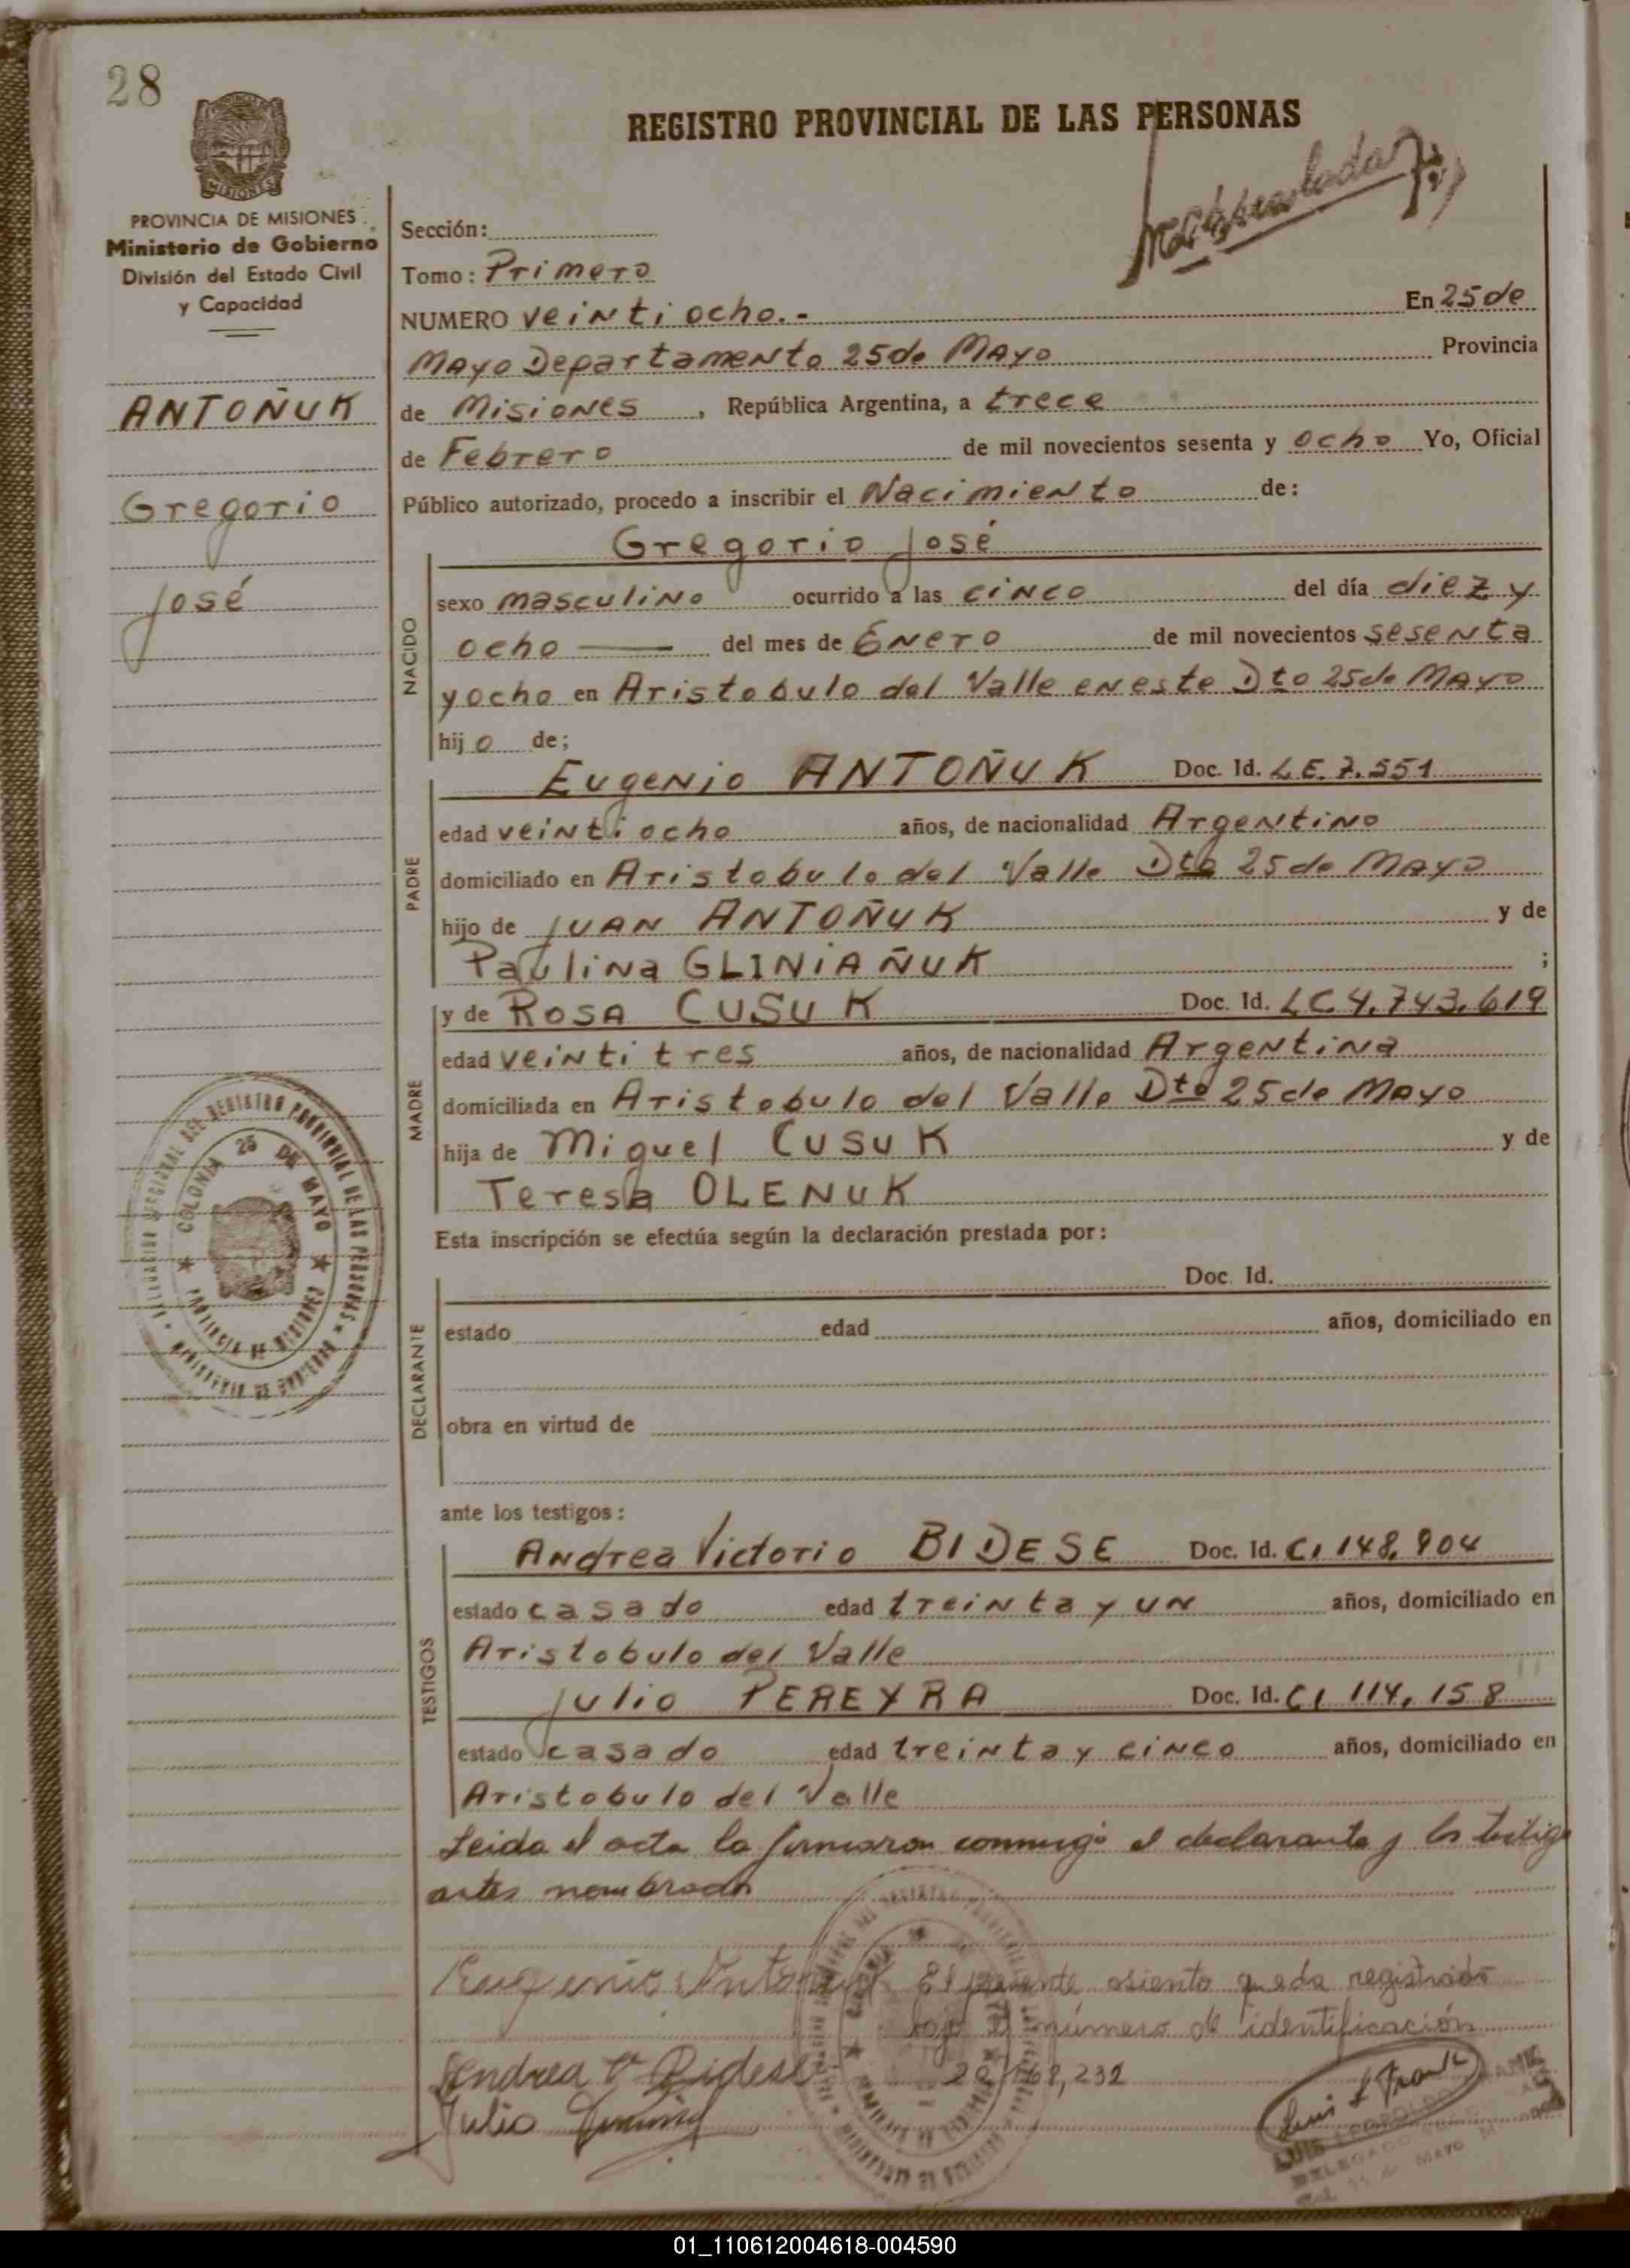 28
REGISTRO PROVINCIAL DE LAS PERSONAS
MISIONES
PROVINCIA DE MISIONES
Ministerio de Gobierno
División del Estado Civil
y Capacidad
ANTOÑUK
Gregorio
José
Sección:
Tomo: Primero
NUMERO veinti ocho.- En 25 de
Mayo Departamento 25 de Mayo Provincia
de Misiones, República Argentina, a trece
de Febrero de mil novecientos sesenta y ocho Yo, Oficial
Público autorizado, procedo a inscribir el Nacimiento de:
Gregorio José
NACIDO
sexo masculino ocurrido a las cinco del día diez y
ocho — del mes de Enero de mil novecientos sesenta
y ocho en Aristobulo del Valle en este Dto 25 de Mayo
hijo de;
PADRE
Eugenio ANTOÑUK Doc. Id. L.E. 7.551
edad veinti ocho años, de nacionalidad Argentino
domiciliado en Aristobulo del Valle Dto 25 de Mayo
hijo de Juan ANTOÑUK y de
Paulina GLINIAÑUK ;
MADRE
y de Rosa CUSUK Doc. Id. LC. 4.743.619
edad veinti tres años, de nacionalidad Argentina
domiciliada en Aristobulo del Valle Dto 25 de Mayo
hija de Miguel CUSUK y de
Teresa OLENUK
COLONIA 25 DE MAYO
PROVINCIA DE MISIONES
Esta inscripción se efectúa según la declaración prestada por:
DECLARANTE
Doc. Id.
estado edad años, domiciliado en
obra en virtud de
ante los testigos:
TESTIGOS
Andrea Victorio BIDESE Doc. Id. CI 148.904
estado casado edad treinta y un años, domiciliado en
Aristobulo del Valle
Julio PEREYRA Doc. Id. CI 114.158
estado casado edad treinta y cinco años, domiciliado en
Aristobulo del Valle
Leida el acta la firmaron conmigo el declarante y los testigo
antes nombrado
Eugenio Antoñuk El presente asiento queda registrado
bajo el número de identificación
Andrea V. Bidese 20,168,232
Julio
Luis L Frank
01_110612004618-004590